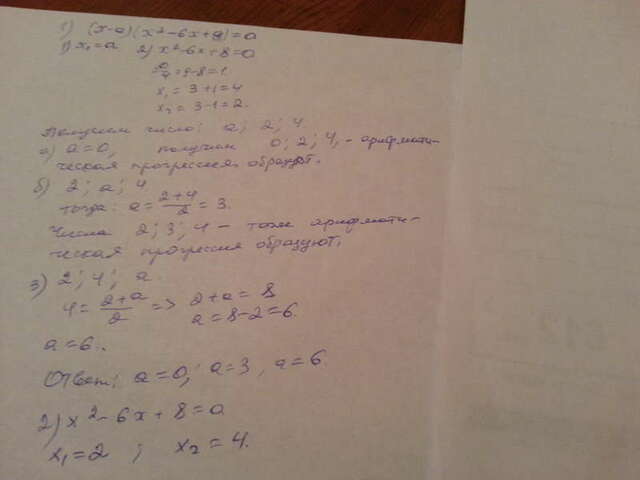 1) (x-a)(x²-6x+8)=0
1) x₁=a 2) x²-6x+8=0
D/4=9-8=1
x₁=3+1=4
x₂=3-1=2.
Получим числа: a; 2; 4
а) a=0, получим 0; 2; 4, - арифмети-
ческая прогрессия образуют.
б) 2; a; 4
тогда: a=(2+4)/2=3.
Числа 2; 3; 4 - тоже арифмети-
ческая прогрессия образуют,
3) 2; 4; a
4=(2+a)/2 => 2+a=8
a=8-2=6.
a=6.
Ответ: a=0; a=3, a=6.
2) x²-6x+8=0
x₁=2; x₂=4.